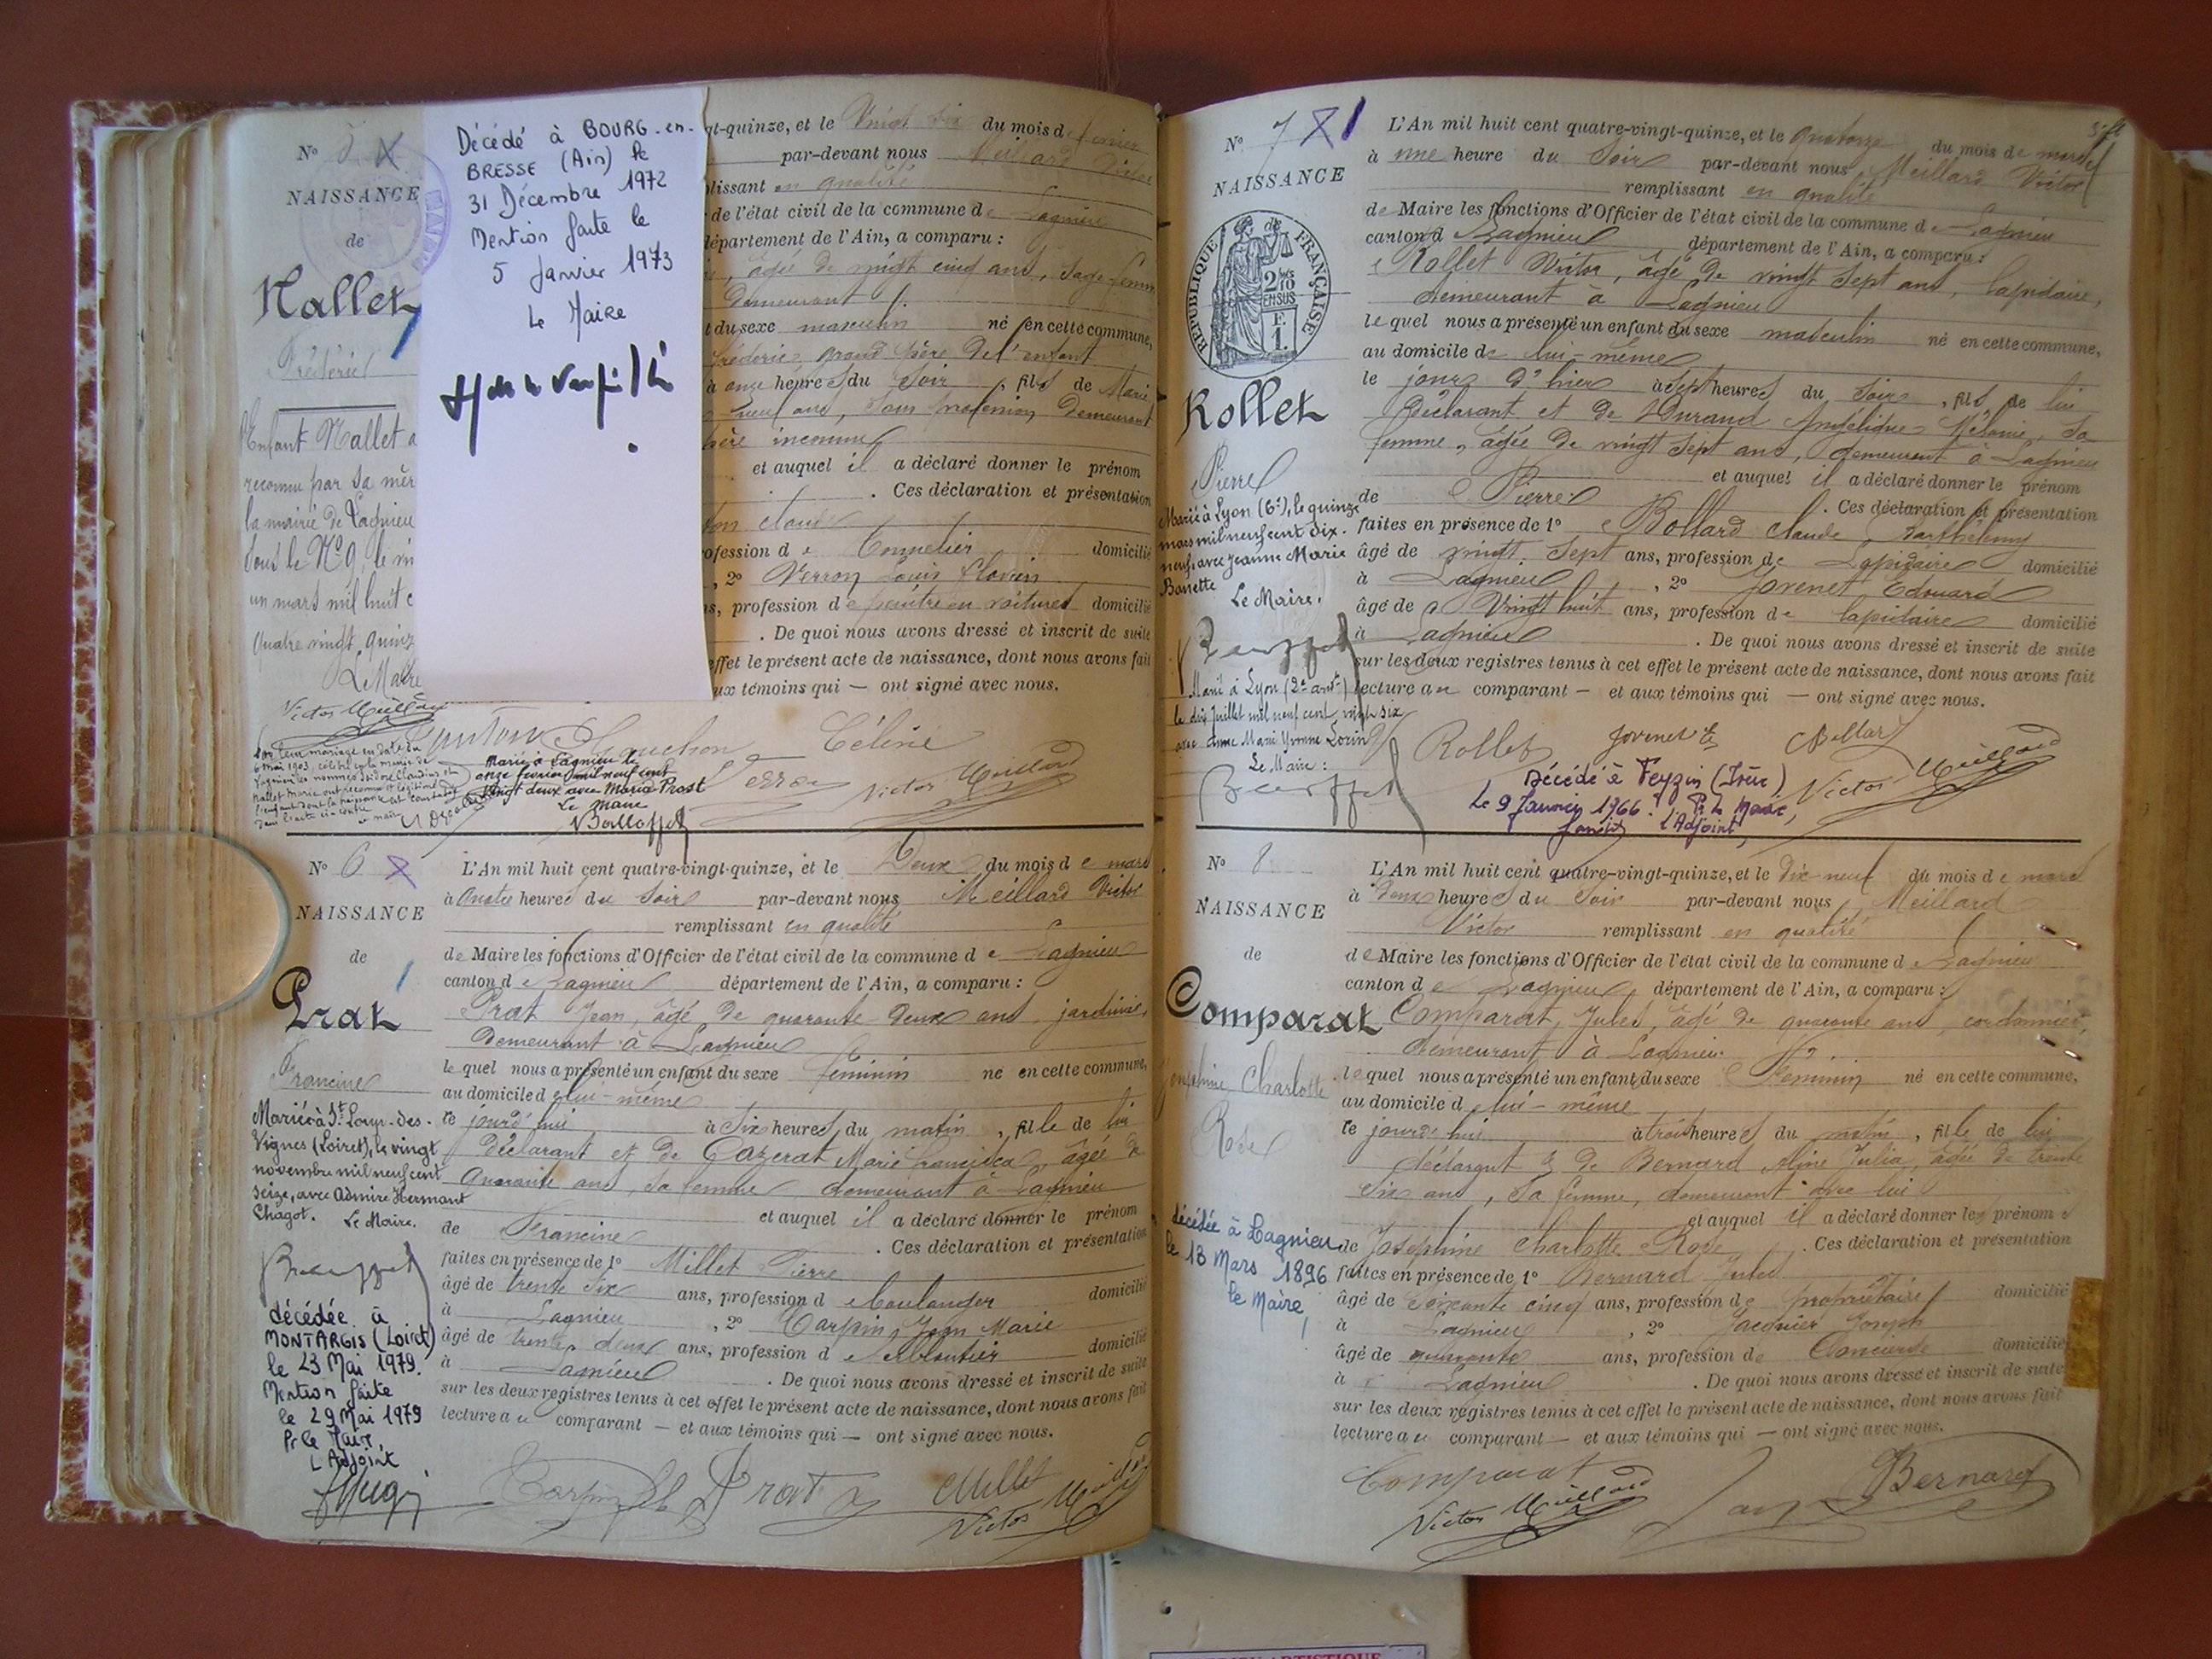 N° 5
NAISSANCE
de
Nallet
Frédéric
Enfant Nallet a
reconnu par sa mèr
la mairie de Lagnieu
sous le N° 9, le vin
un mars mil huit c
quatre vingt quinz
Le Maire
Victor Meillard
Marié à Lagnieu le
onze février mil neuf cent
vingt deux avec Maria Prost
Le maire
Décédé à BOURG-en-
BRESSE (Ain) le
31 Décembre 1972
Mention faite le
5 Janvier 1973
Le Maire
gt-quinze, et le Vingt six du mois de février
par-devant nous Meillard Victor
plissant en qualité
de l'état civil de la commune de Lagnieu
département de l'Ain, a comparu :
, âgée de vingt cinq ans, Sage-femme
demeurant
t du sexe masculin né en cette commune,
Frédéric, grand père de l'enfant
à onze heures du soir, fils de Marie
neuf ans, sans profession, demeurant
père inconnu
et auquel il a déclaré donner le prénom
. Ces déclaration et présentation
ton claude
ofession de Tonnelier domicilié
, 2° Verron Louis
ns, profession de peintre en voitures domicilié
. De quoi nous avons dressé et inscrit de suite
effet le présent acte de naissance, dont nous avons fait
ux témoins qui — ont signé avec nous.
Céline
Victor Meillard
N° 6
NAISSANCE
de
Prat
Francine
Mariée à St Loup-des-
Vignes (Loiret), le vingt
novembre mil neuf cent
seize, avec Admire Hermant
Chagot. Le Maire.
décédée à
MONTARGIS (Loiret)
le 23 Mai 1979.
Mention faite
le 29 Mai 1979
Pr le Maire,
L'Adjoint
L'An mil huit cent quatre-vingt-quinze, et le Deux du mois de mars
à quatre heures du soir par-devant nous Meillard Victor
remplissant en qualité
de Maire les fonctions d'Officier de l'état civil de la commune de Lagnieu
canton de Lagnieu département de l'Ain, a comparu :
Prat Jean, âgé de quarante deux ans, jardinier,
demeurant à Lagnieu
lequel nous a présenté un enfant du sexe féminin né en cette commune,
au domicile de lui-même
ce jourd'hui à six heures du matin, fille de lui
déclarant et de Cazerat Marie francisca, âgée de
quarante ans, sa femme demeurant à Lagnieu
et auquel il a déclaré donner le prénom
de Francine . Ces déclaration et présentation
faites en présence de 1° Millet Pierre
âgé de trente six ans, profession de boulanger domicilié
à Lagnieu , 2° Carpin, Jean Marie
âgé de trente deux ans, profession de ferblantier domicilié
à Lagnieu . De quoi nous avons dressé et inscrit de suite
sur les deux registres tenus à cet effet le présent acte de naissance, dont nous avons fait
lecture au comparant — et aux témoins qui — ont signé avec nous.
Carpin Prat Millet
Victor Meillard
N° 7
NAISSANCE
de
RÉPUBLIQUE FRANÇAISE
Rollet
Pierre
Marié à Lyon (6e), le quinze
mars mil neuf cent dix-
neuf, avec Jeanne Marie
Le Maire.
Marié à Lyon (2e arrt)
le dix Juillet mil neuf cent vingt six
avec Anne Marie Yvonne Lorin
Le Maire :
L'An mil huit cent quatre-vingt-quinze, et le quatorze du mois de mars
à une heure du soir par-devant nous Meillard Victor
remplissant en qualité
de Maire les fonctions d'Officier de l'état civil de la commune de Lagnieu
canton de Lagnieu département de l'Ain, a comparu :
Rollet Victor, âgé de vingt sept ans, lapidaire,
demeurant à Lagnieu
lequel nous a présenté un enfant du sexe masculin né en cette commune,
au domicile de lui-même
le jour d'hier à sept heures du soir, fils de lui
déclarant et de Durand Angélique Mélanie, sa
femme, âgée de vingt sept ans, demeurant à Lagnieu
et auquel il a déclaré donner le prénom
de Pierre . Ces déclaration et présentation
faites en présence de 1° Bollard Claude Barthélemy
âgé de vingt sept ans, profession de Lapidaire domicilié
à Lagnieu , 2° Jovenet Edouard
âgé de Vingt huit ans, profession de lapidaire domicilié
à Lagnieu . De quoi nous avons dressé et inscrit de suite
sur les deux registres tenus à cet effet le présent acte de naissance, dont nous avons fait
lecture au comparant — et aux témoins qui — ont signé avec nous.
Rollet Jovenet Bollard
Victor Meillard
Décédé à Feyzin (Isère)
Le 9 Janvier 1966. Pr le Maire,
l'Adjoint
N° 8
NAISSANCE
de
Comparat
Joséphine Charlotte
Rose
décédée à Lagnieu
le 13 Mars 1896
le Maire
L'An mil huit cent quatre-vingt-quinze, et le dix-neuf du mois de mars
à deux heures du soir par-devant nous Meillard
Victor remplissant en qualité
de Maire les fonctions d'Officier de l'état civil de la commune de Lagnieu
canton de Lagnieu département de l'Ain, a comparu :
Comparat, Jules, âgé de quarante ans, cordonnier,
demeurant à Lagnieu
lequel nous a présenté un enfant du sexe Féminin né en cette commune,
au domicile de lui-même
ce jourd'hui à trois heures du matin, fille de lui
déclarant & de Bernard Aline Julia, âgée de trente
six ans, sa femme, demeurant avec lui
et auquel il a déclaré donner les prénoms
de Joséphine Charlotte Rose . Ces déclaration et présentation
faites en présence de 1° Bernard Jules
âgé de soixante cinq ans, profession de propriétaire domicilié
à Lagnieu , 2° Jacquier Joseph
âgé de quarante ans, profession de Concierge domicilié
à Lagnieu . De quoi nous avons dressé et inscrit de suite
sur les deux registres tenus à cet effet le présent acte de naissance, dont nous avons fait
lecture au comparant — et aux témoins qui — ont signé avec nous.
Comparat Bernard
Victor Meillard